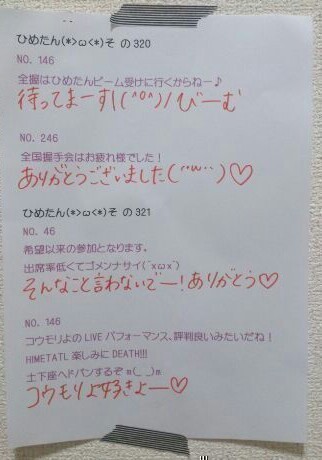 ひめたん(*>ω<*)そ の320
NO. 146
全握はひめたんビーム受けに行くからねー♪
待ってまーす!(^o^)/びーむ
NO. 246
全国握手会はお疲れ様でした！
ありがとうございました(´`ω´`)♡
ひめたん(*>ω<*)そ の321
NO. 46
希望以来の参加となります。
出席率低くてゴメンナサイ(´xωx`)
そんなこと言わないでー!ありがとう♡
NO. 146
コウモリよのLIVEパフォーマンス、評判良いみたいだね！
HIMETATL 楽しみにDEATH!!!
土下座ヘドバンするぞ m(_ _)m
コウモリよ好きよー♡